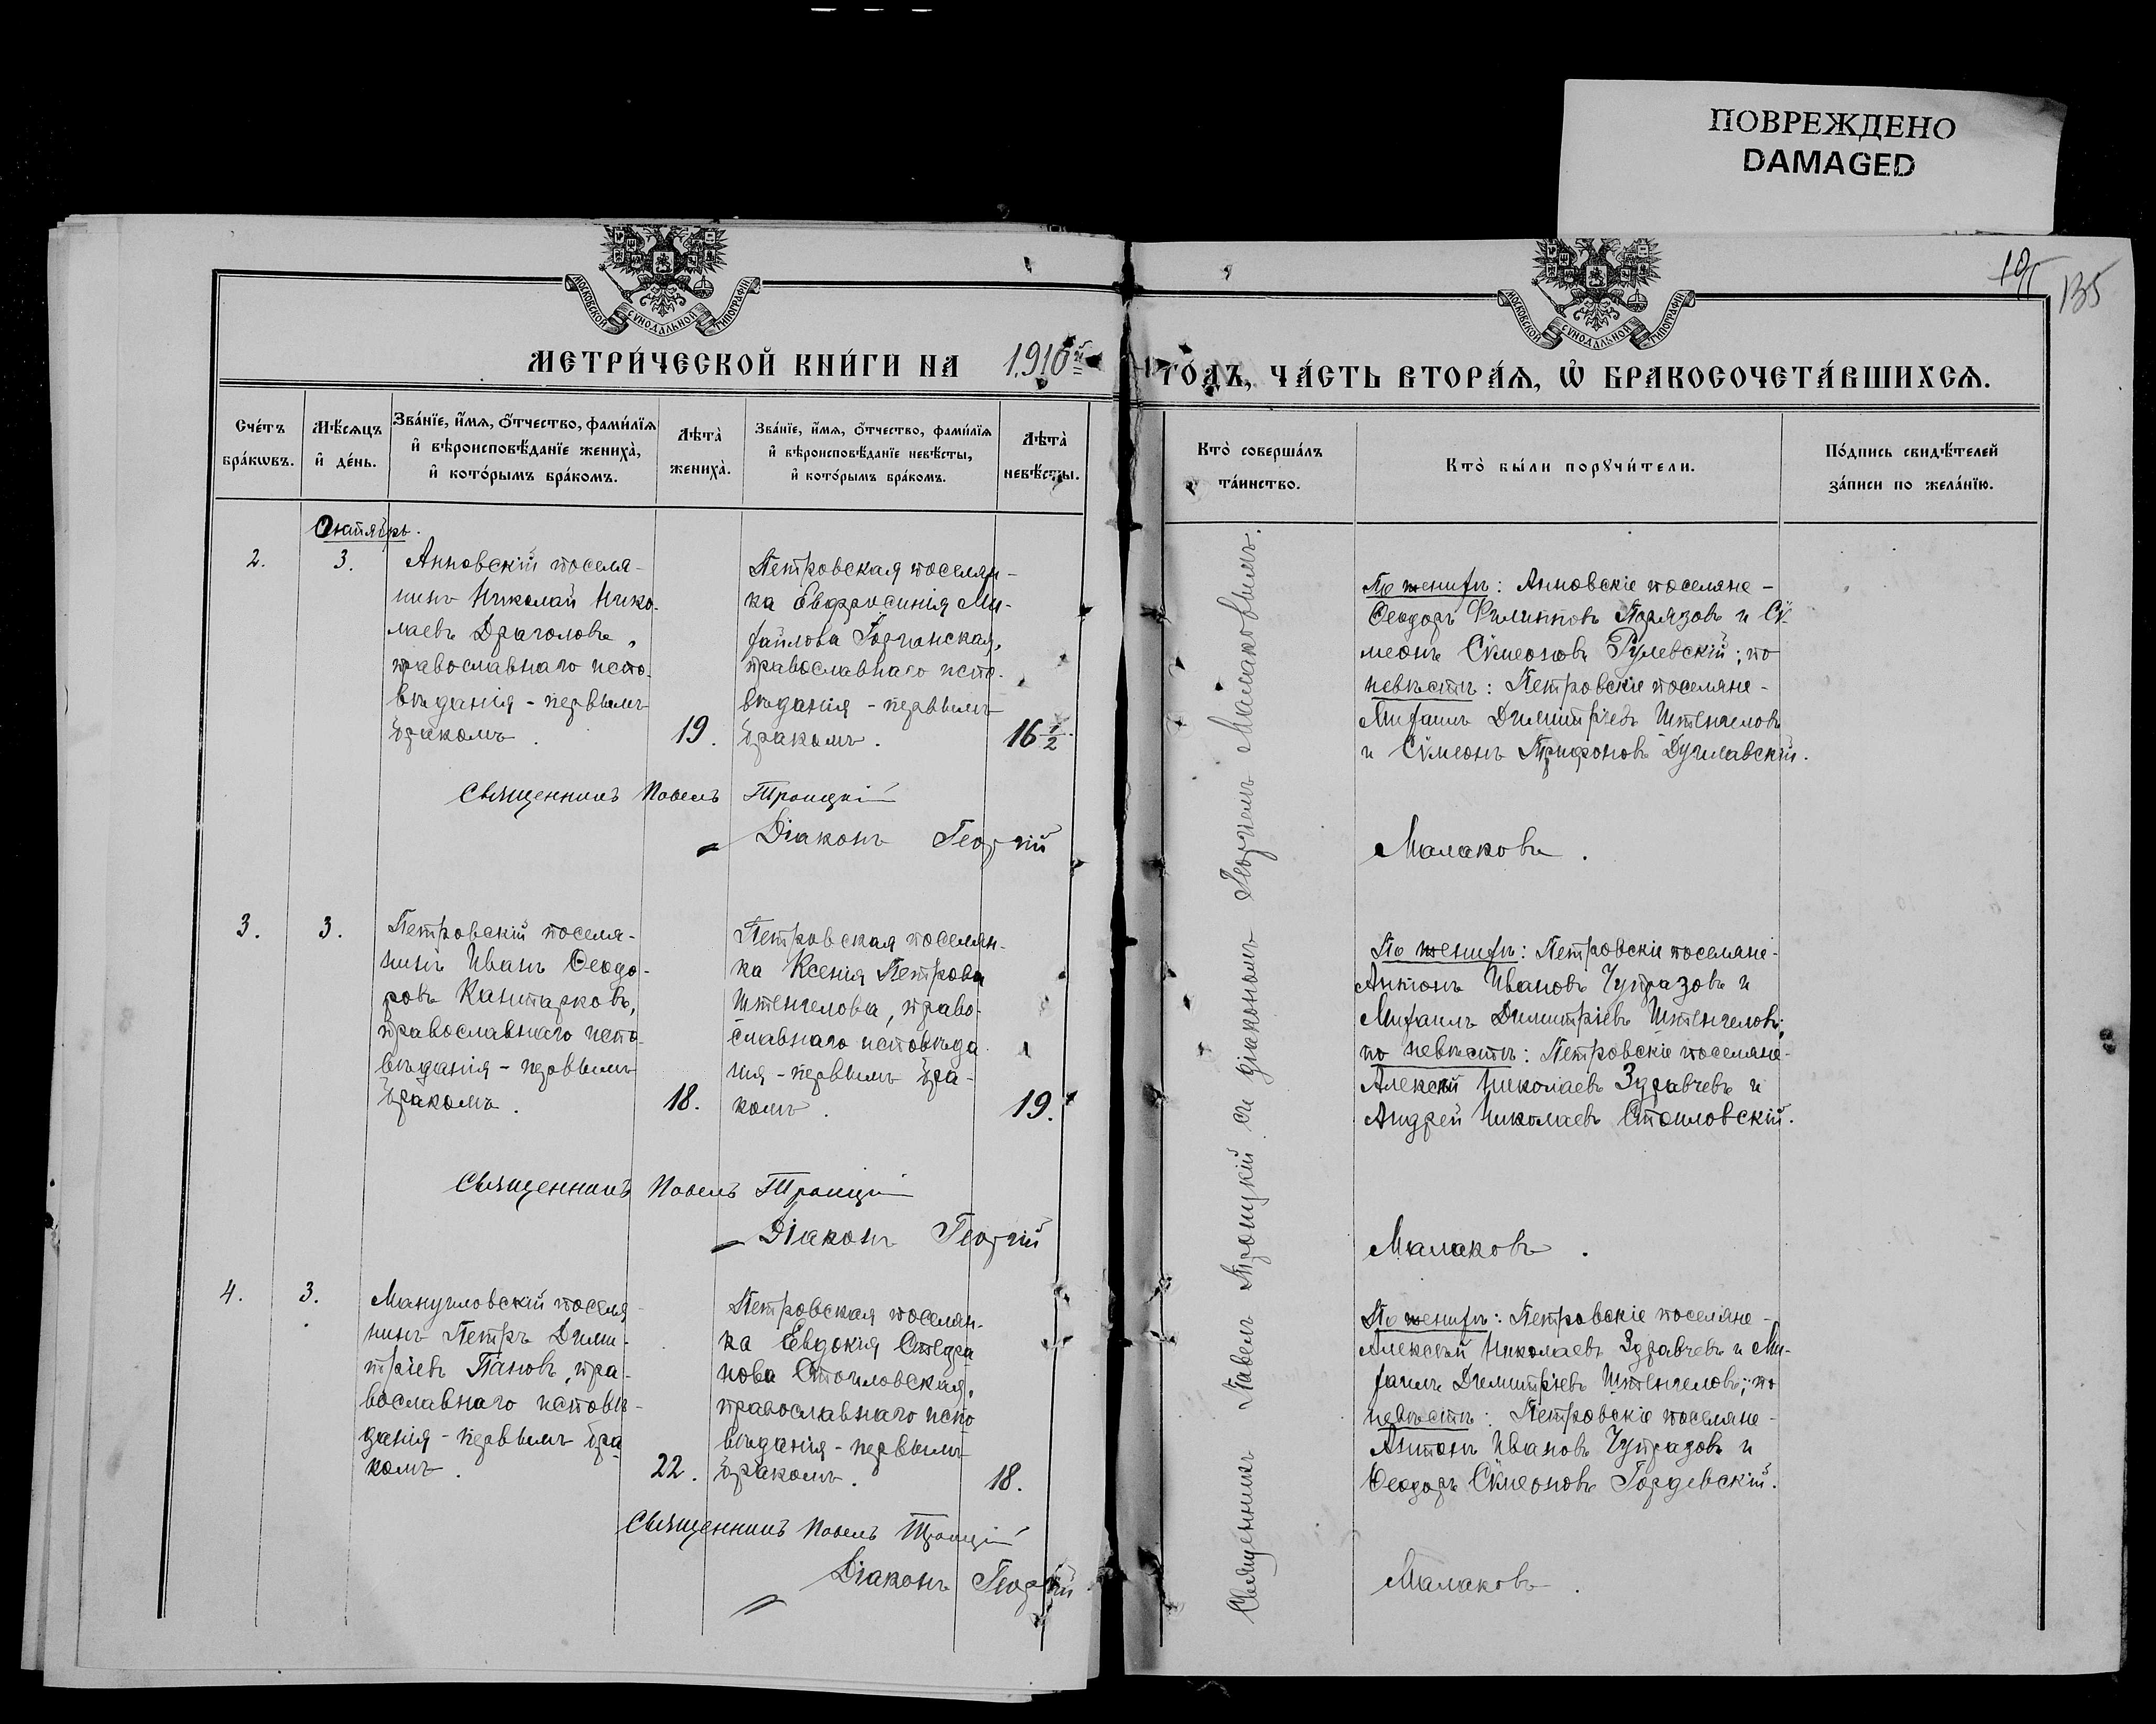 ПОВРЕЖДЕНО
DAMAGED
135
МОСКОВСКОЙ СУНОДАЛЬНОЙ ТИПОГРАФІИ
МОСКОВСКОЙ СУНОДАЛЬНОЙ ТИПОГРАФІИ
МЕТРИ́ЧЕСКОЙ КНИ́ГИ НА 1910й ГОДЪ, ЧА́СТЬ ВТОРА́Ѧ, Ѡ҆ БРАКОСОЧЕТА́ВШИХСѦ.
Сче́тъ
бра́кѡвъ.
Мѣ́сѧцъ
и҆ де́нь.
Зва́нїе, и҆́мѧ, ѻ҆́тчество, фами́лїѧ
и҆ вѣроисповѣ́данїе жениха̀,
и҆ кото́рымъ бра́комъ.
Лѣта̀
жениха̀.
Зва́нїе, и҆́мѧ, ѻ҆́тчество, фами́лїѧ
и҆ вѣроисповѣ́данїе невѣ́сты,
и҆ кото́рымъ бра́комъ.
Лѣта̀
невѣ́сты.
Кто̀ соверша́лъ
та́инство.
Кто̀ бы́ли порꙋчи́тели.
По́дпись свидѣ́телей
за́писи по жела́нїю.
Октябрь.
2.
3.
Анновскій поселя-
нинъ Николай Нико-
лаевъ Драголовъ,
православнаго испо-
вѣданія - первымъ
бракомъ.
19.
Петровская поселян-
ка Евфросинія Ми-
хайлова
православнаго испо-
вѣданія - первымъ
бракомъ.
16 1/2.
По женихѣ: Анновскіе поселяне -
Ѳеодоръ Филипповъ и Сѵ-
меонъ Сѵмеоновъ Рулевскій; по
невѣстѣ: Петровскіе поселяне -
Михаилъ Димитріевъ Штенгеловъ
и Сѵмеонъ Трифоновъ
Священникъ Павелъ Троицкій
Діаконъ Георгій Малаковъ.
3.
3.
Петровскій поселя-
нинъ Иванъ Ѳеодо-
ровъ Кантарковъ,
православнаго испо-
вѣданія - первымъ
бракомъ.
18.
Петровская поселян-
ка Ксенія Петрова
Штенгелова, право-
славнаго исповѣда-
нія - первымъ бра-
комъ.
19.
По женихѣ: Петровскіе поселяне -
Антонъ Ивановъ Чупразовъ и
Михаилъ Димитріевъ Штенгеловъ;
по невѣстѣ: Петровскіе поселяне -
Алексѣй Николаевъ Здравчевъ и
Андрей Николаевъ Стоиловскій.
Священникъ Павелъ Троицкій
Діаконъ Георгій Малаковъ.
4.
3.
Мануиловскій поселя-
нинъ Петръ Дими-
тріевъ Пановъ, пра-
вославнаго исповѣ-
данія - первымъ бра-
комъ.
22.
Петровская поселян-
ка Евдокія Стефа
нова Стоиловская,
православнаго испо
вѣданія - первымъ
бракомъ.
18.
По женихѣ: Петровскіе поселяне -
Алексѣй Николаевъ Здравчевъ и Ми-
хаилъ Димитріевъ Штенгеловъ; по
невѣстѣ: Петровскіе поселяне -
Антонъ Ивановъ Чупразовъ и
Ѳеодоръ Сѵмеоновъ Гордевскій.
Священникъ Павелъ Троицкій
Діаконъ Георгій Малаковъ.
Священникъ Павелъ Троицкій съ діакономъ Георгіемъ Малаковымъ.